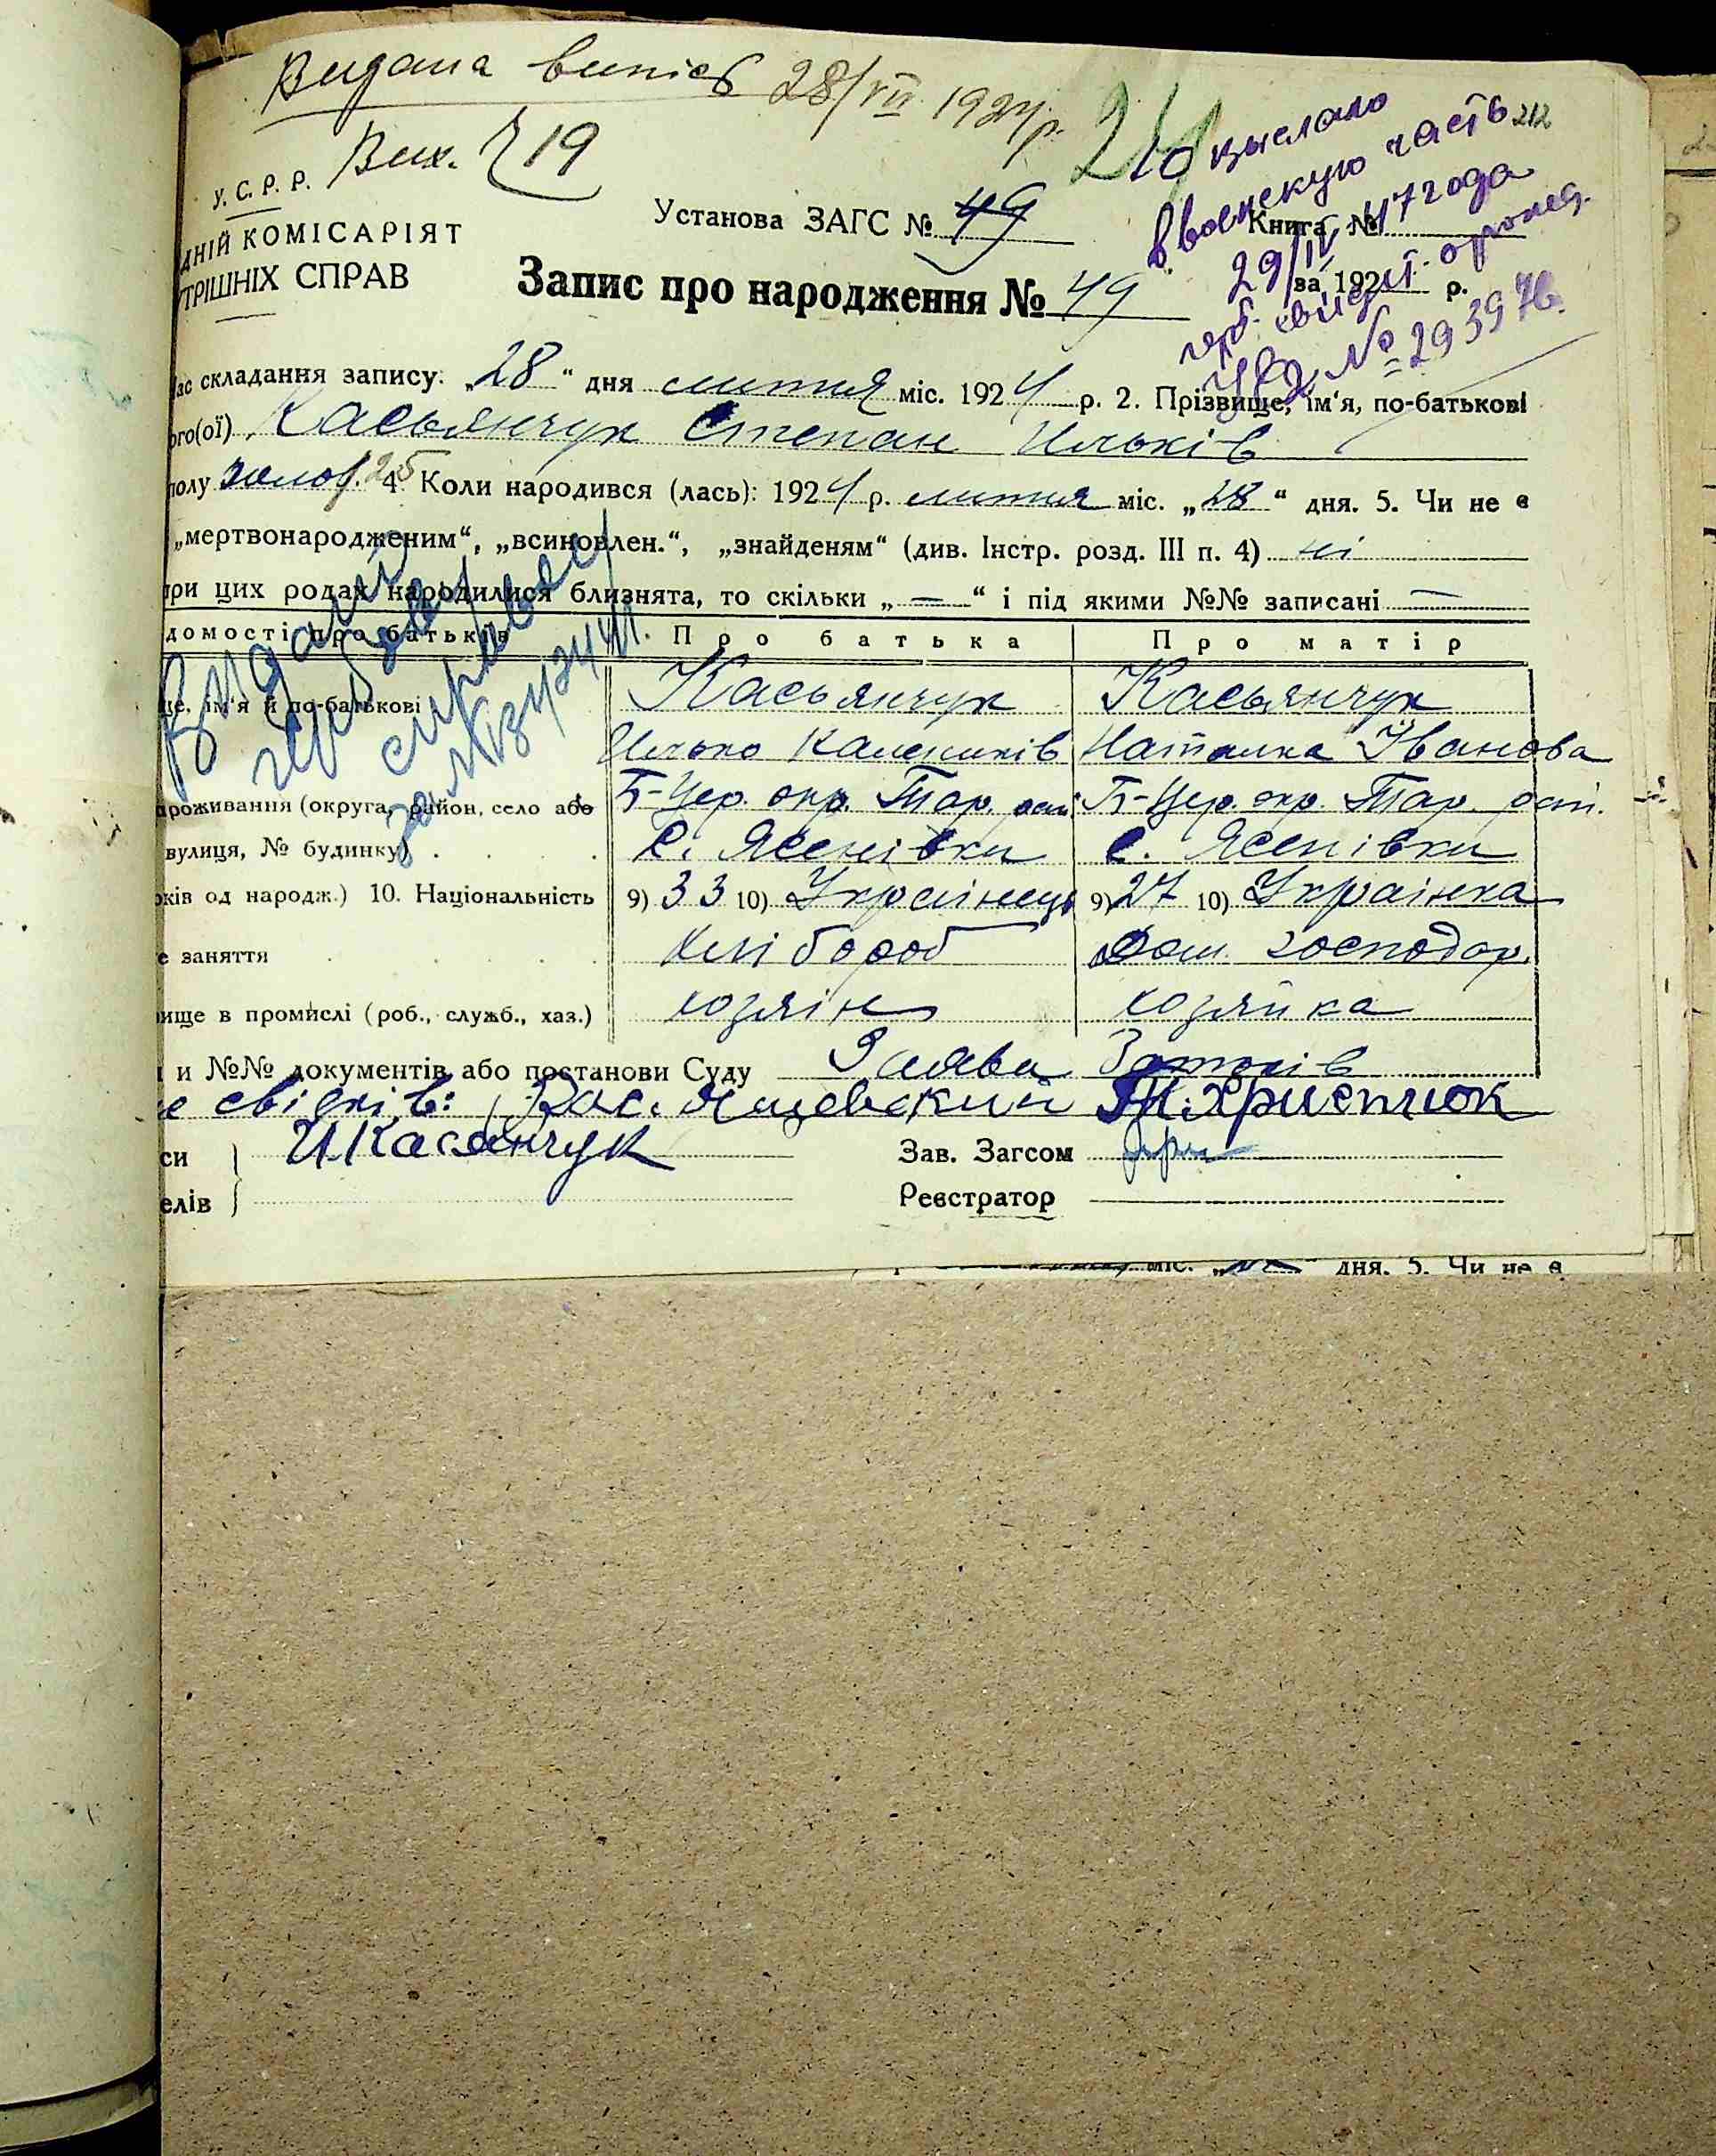 Видана випісь 28/VII 1924 р.
Вих. 719
212
выслано
в воинскую часть
29/IV 47 года
№ 293976
У. С. Р. Р.
ДНІЙ КОМІСАРІЯТ
ТРІШНІХ СПРАВ
Установа ЗАГС № 49
Книга №
за 192 р.
Запис про народження № 49
ас складання запису: „28“ дня липня міс. 1924 р. 2. Прізвище, ім‘я, по-батькові
ого(ої) Касьянчук Степан Ильків
полу чолов. 25 4. Коли народився (лась): 1924 р. липня міс. „28“ дня. 5. Чи не є
„мертвонародженим“, „всиновлен.“, „знайденям“ (див. Інстр. розд. III п. 4) ні
при цих родах народилися близнята, то скільки „—“ і під якими №№ записані —
Видані
домості про батьків Про батька Про матір
ще, ім‘я й по-батькові Касьянчук Касьянчук
Илько Калеників Наталка Іванова
проживання (округа, район, село або Б-Цер. окр. Тар. рай. Б-Цер. окр. Тар. рай.
вулиця, № будинку) с. Ясенівки с. Ясенівки
оків од народж.) 10. Національність 9) 33 10) Українець 9) 27 10) Українка
е заняття Хлібороб Дом. господар.
ище в промислі (роб., служб., хаз.) хозяїн хозяйка
и №№ документів або постанови Суду Заява
свідків: Т. Христюк
си И. Касянчук Зав. Загсом
елів Реєстратор
міс. дня. 5. Чи не є